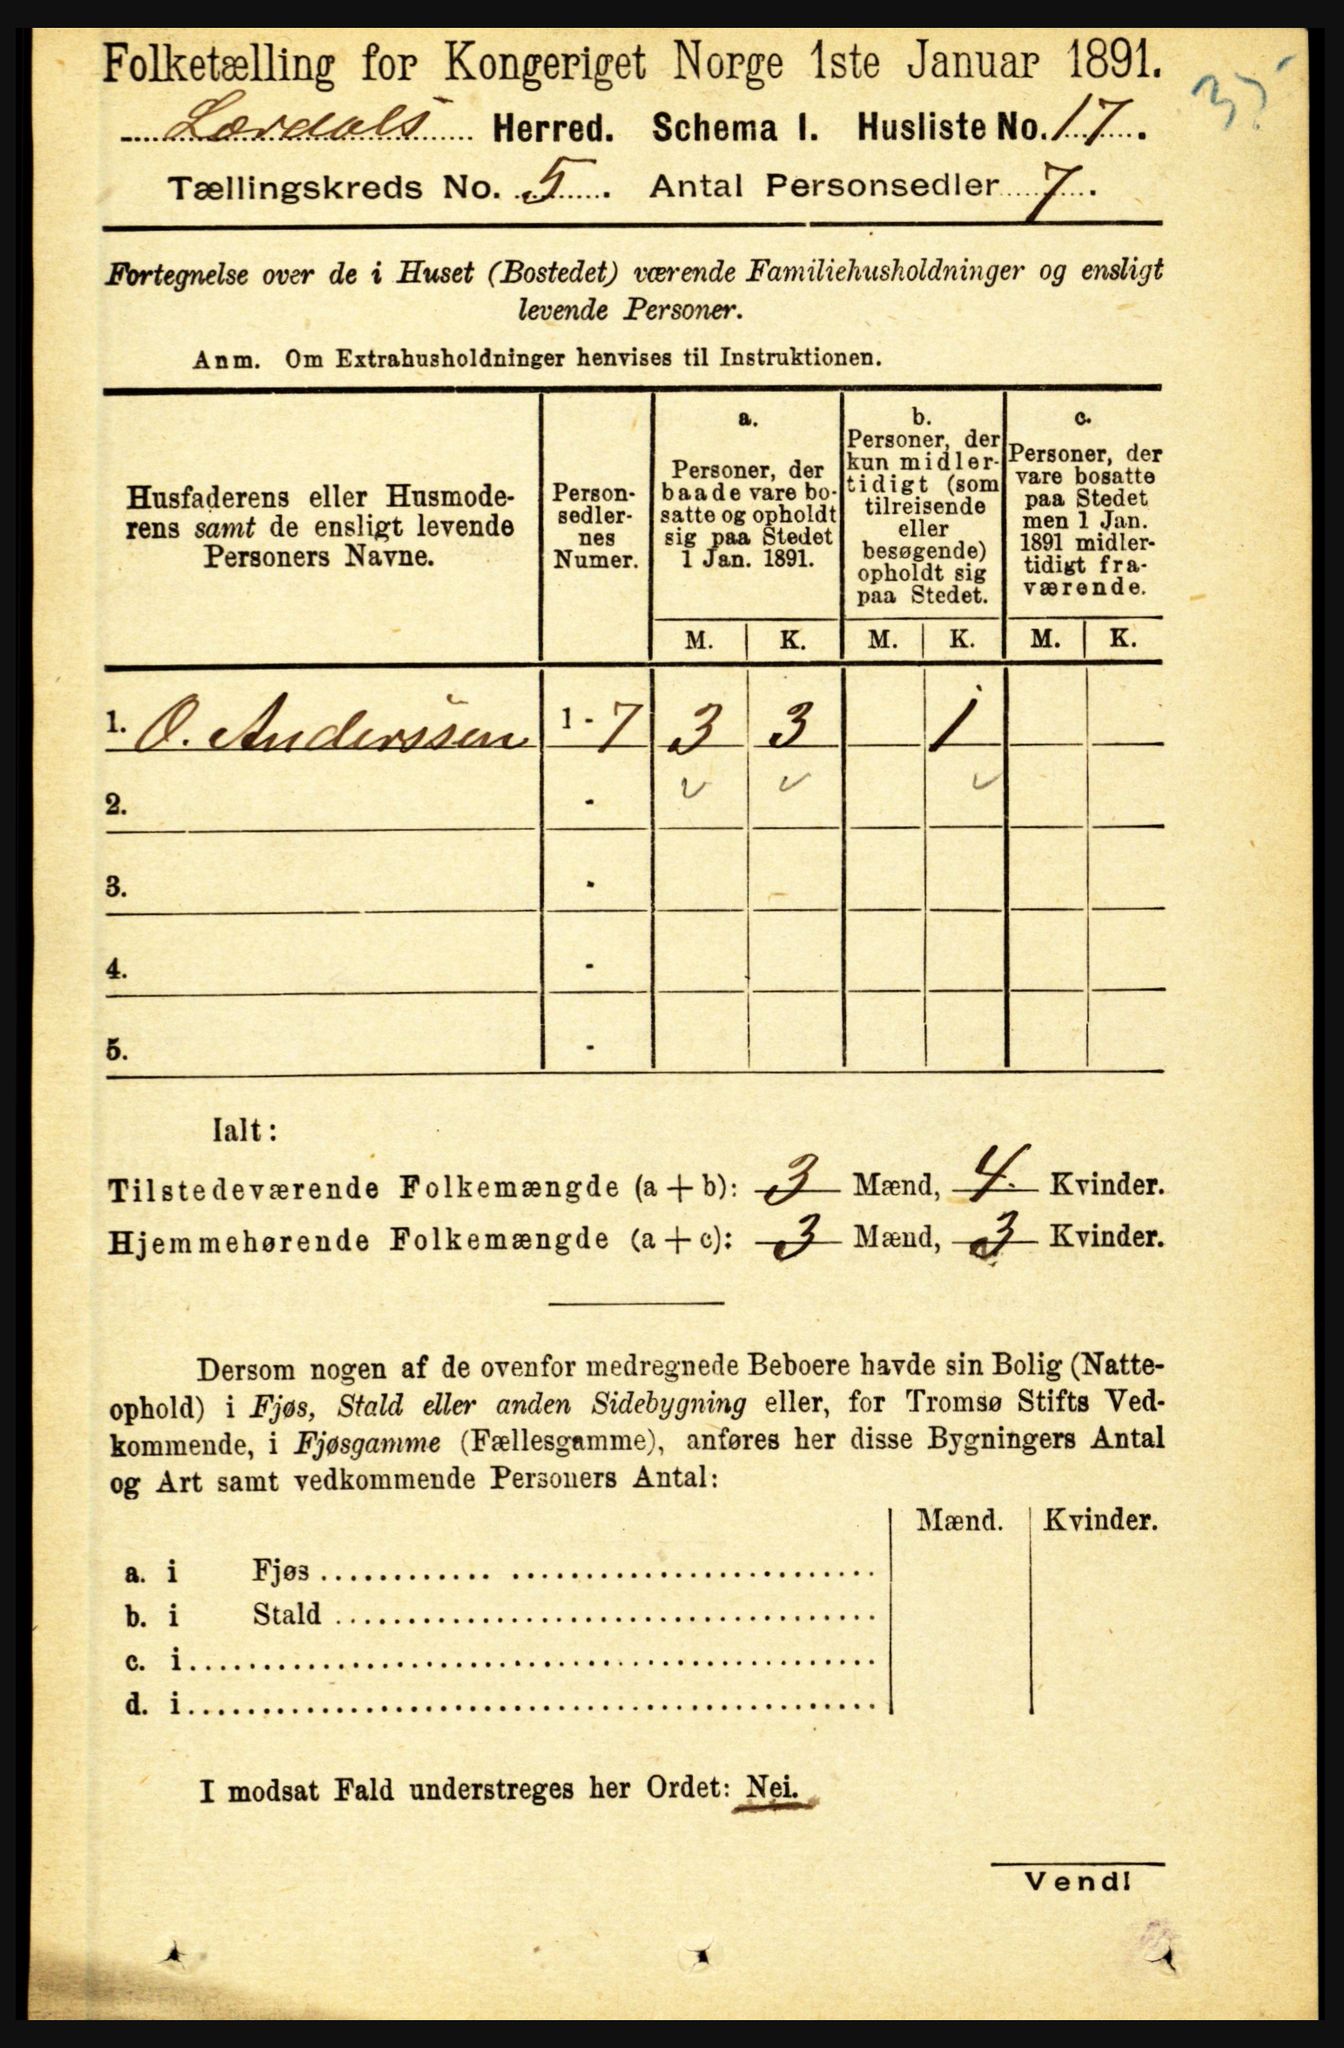 Folketælling for Kongeriget Norge 1ste Januar 1891.
Lærdals Herred. Schema I. Husliste No. 17.
Tællingskreds No. 5. Antal Personsedler 7.
Fortegnelse over de i Huset (Bostedet) værende Familiehusholdninger og ensligt
levende Personer.
Anm. Om Extrahusholdninger henvises til Instruktionen.
Husfaderens eller Husmode-
rens samt de ensligt levende
Personers Navne.
Person-
sedler-
nes
Numer.
a.
Personer, der
baade vare bo-
satte og opholdt
sig paa Stedet
1 Jan. 1891.
b.
Personer, der
kun midler-
tidigt (som
tilreisende
eller
besøgende)
opholdt sig
paa Stedet.
c.
Personer, der
vare bosatte
paa Stedet
men 1 Jan.
1891 midler-
tidigt fra-
værende.
M. K. M. K. M. K.
1. O. Anderssen 1 - 7 3 3 1
2. -
3. -
4. -
5. -
Ialt:
Tilstedeværende Folkemængde (a + b): 3 Mænd, 4. Kvinder.
Hjemmehørende Folkemængde (a + c): 3 Mænd, 3 Kvinder.
Dersom nogen af de ovenfor medregnede Beboere havde sin Bolig (Natte-
ophold) i Fjøs, Stald eller anden Sidebygning eller, for Tromsø Stifts Ved-
kommende, i Fjøsgamme (Fællesgamme), anføres her disse Bygningers Antal
og Art samt vedkommende Personers Antal:
Mænd. Kvinder.
a. i Fjøs
b. i Stald
c. i
d. i
I modsat Fald understreges her Ordet: Nei.
Vend!